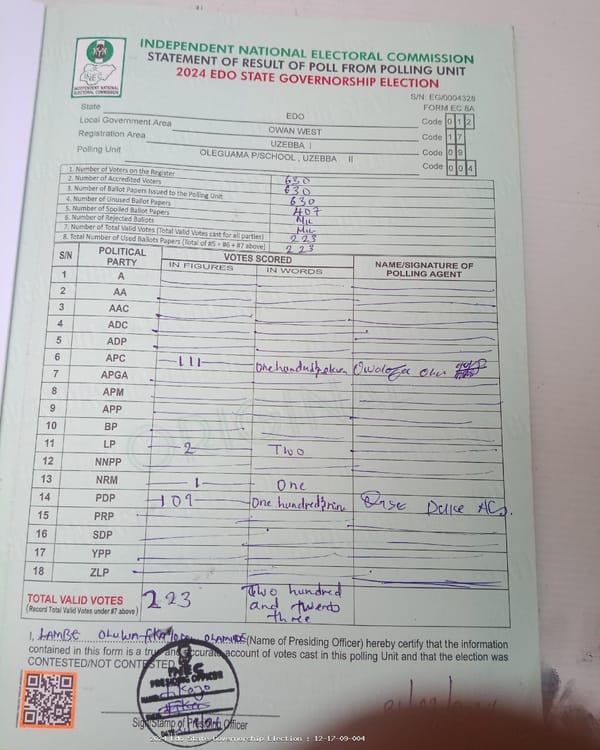 INDEPENDENT NATIONAL ELECTORAL COMMISSION
STATEMENT OF RESULT OF POLL FROM POLLING UNIT
2024 EDO STATE GOVERNORSHIP ELECTION
INEC
INDEPENDENT NATIONAL
ELECTORAL COMMISSION
S/N: EG/0004328
FORM EC 8A
State EDO Code 0 1 2
Local Government Area OWAN WEST Code 1 7
Registration Area UZEBBA I Code 0 9
Polling Unit OLEGUAMA P/SCHOOL , UZEBBA II Code 0 0 4
1. Number of Voters on the Register 630
2. Number of Accredited Voters 630
3. Number of Ballot Papers Issued to the Polling Unit 630
4. Number of Unused Ballot Papers 407
5. Number of Spoiled Ballot Papers Nil
6. Number of Rejected Ballots Nil
7. Number of Total Valid Votes (Total Valid Votes cast for all parties) 223
8. Total Number of Used Ballots Papers (Total of #5 + #6 + #7 above) 223
S/N POLITICAL PARTY VOTES SCORED NAME/SIGNATURE OF POLLING AGENT
IN FIGURES IN WORDS
1 A
2 AA
3 AAC
4 ADC
5 ADP
6 APC 111
7 APGA
8 APM
9 APP
10 BP
11 LP 2 Two
12 NNPP
13 NRM 1 One
14 PDP 109 One hundred
15 PRP
16 SDP
17 YPP
18 ZLP
TOTAL VALID VOTES 223 Two hundred
(Record Total Valid Votes under #7 above) and twenty
three
I, LAMBE (Name of Presiding Officer) hereby certify that the information
contained in this form is a true and accurate account of votes cast in this polling Unit and that the election was
CONTESTED/NOT CONTESTED
INEC
PRESIDING OFFICER
Sign/Stamp of Presiding Officer
2024 Edo State Governorship Election : 12-17-09-004